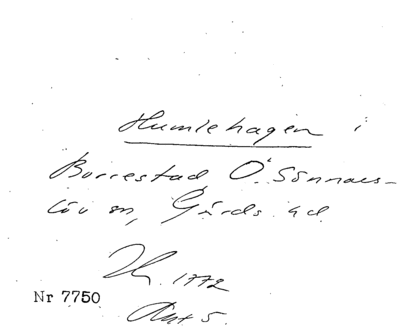 Humlehagen i
Borrestad Ö. Sönnars-
löv sn, Gärds hd.
1772
Nr 7750
Akt 5.